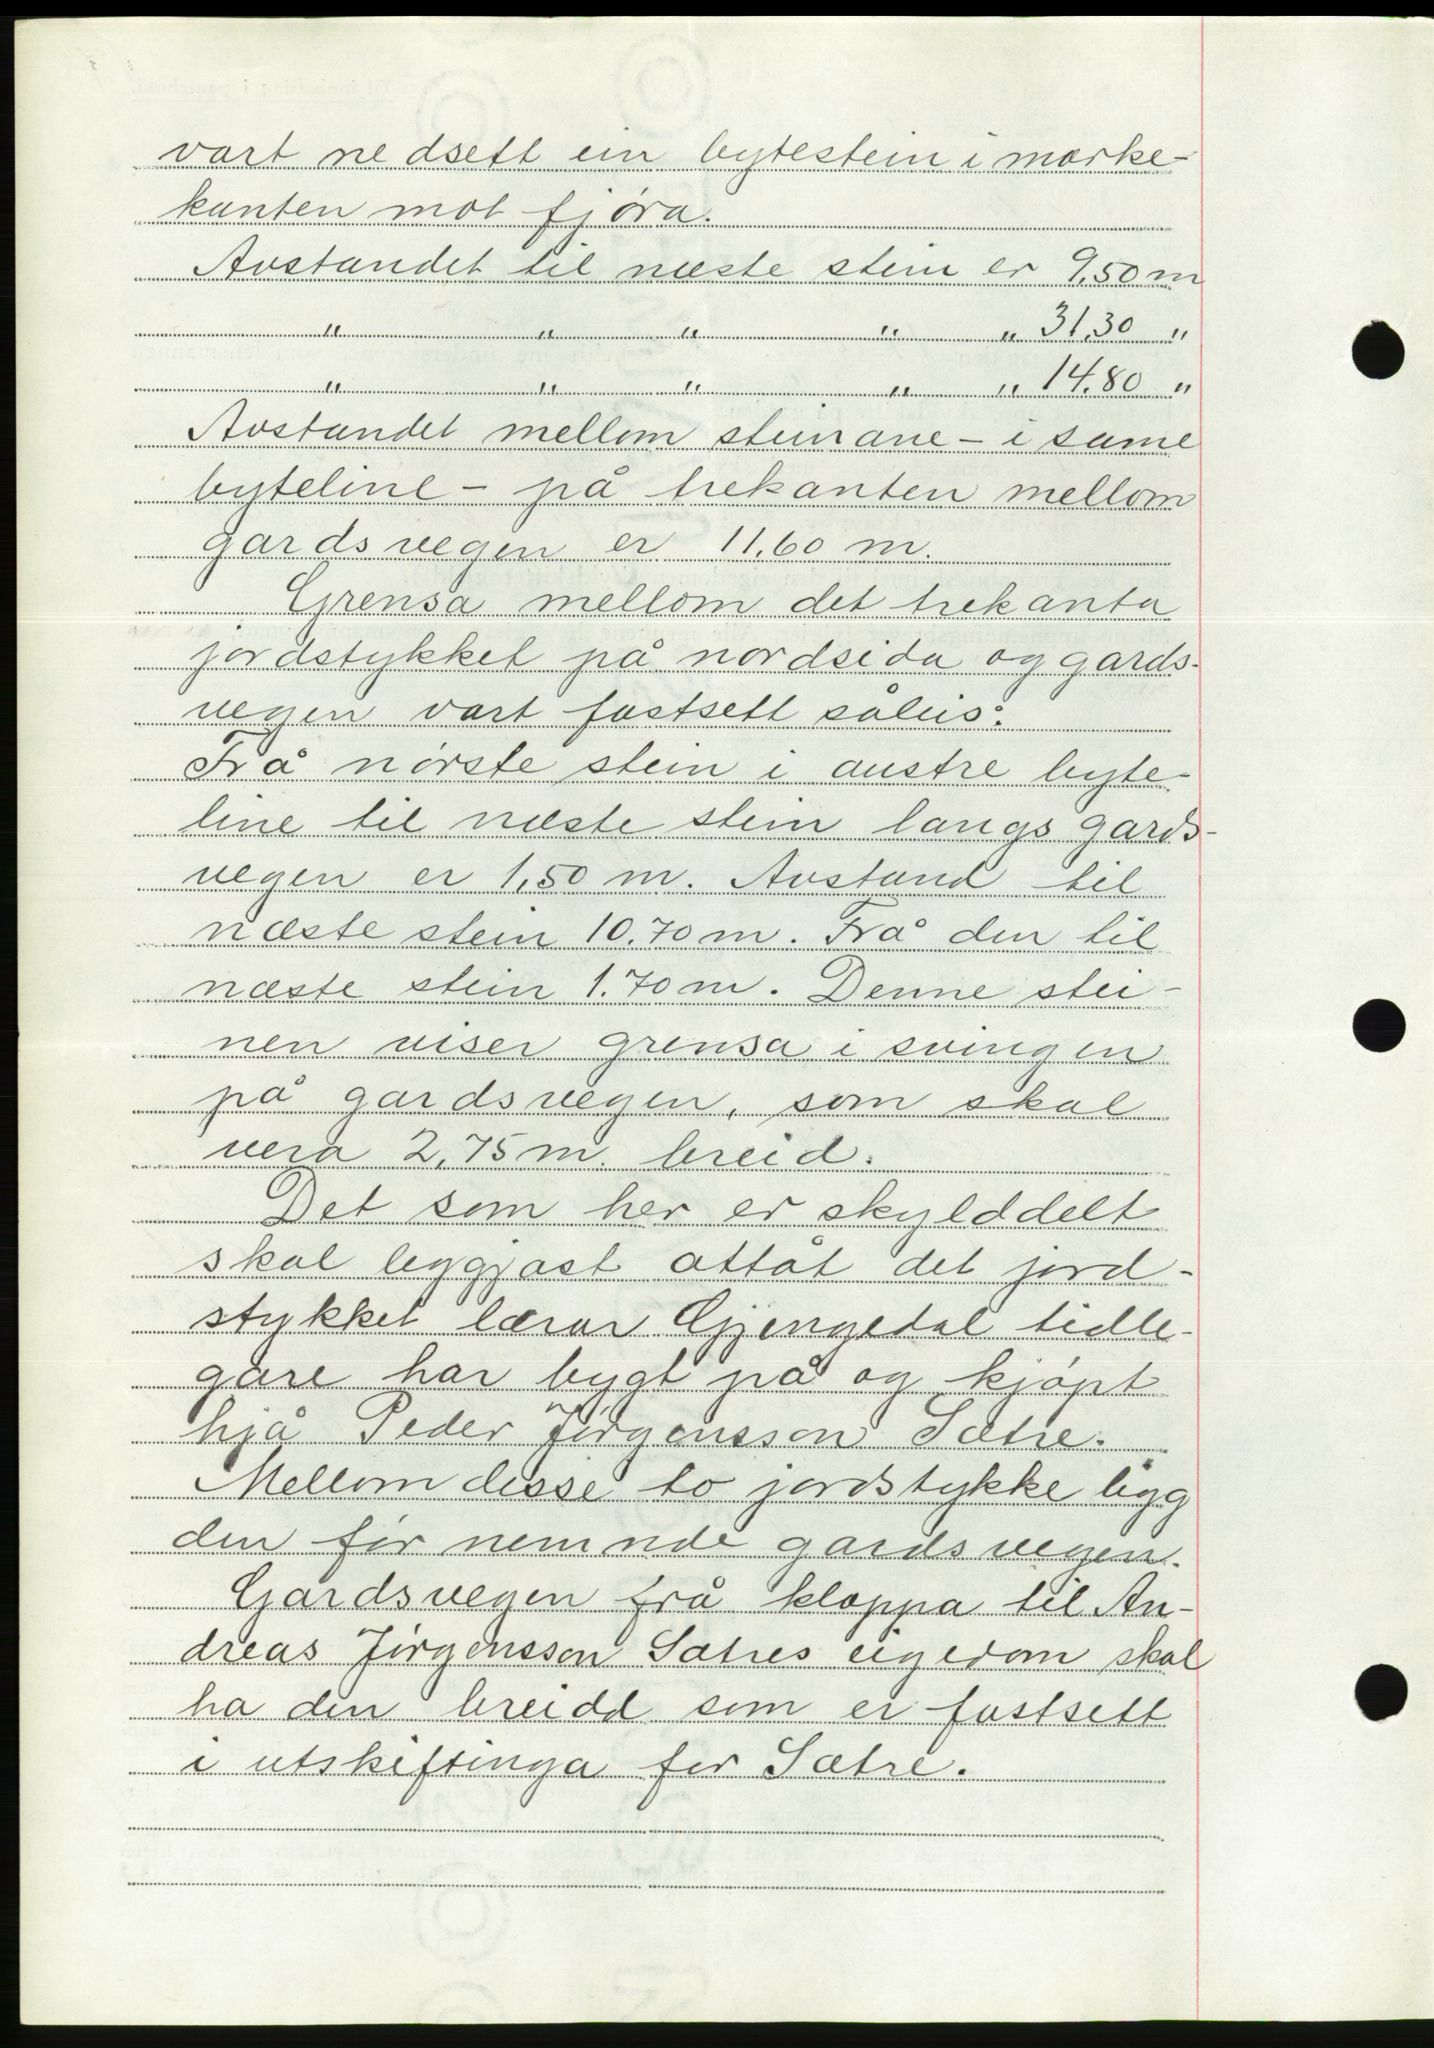 vart nedsett ein bytestein i marke-
kanten mot fjöra.
Avstandet til næste stein er 9,50 m
" " " " " 31,30 "
" " " " " 14.80 "
Avstandet mellom steinane - i same
byteline - på trekanten mellom
gardsvegen er 11,60 m.
Grensa mellom det trekanta
jordstykket på nordsida og gards-
vegen vart fastsett såleis:
Frå nørste stein i austre byte-
line til næste stein langs gards-
vegen er 1,50 m. Avstand til
næste stein 10.70 m. Frå den til
næste stein 1.70 m. Denne stei-
nen viser grensa i svingen
på gardsvegen, som skal
vera 2,75 m. breid.
Det som her er skylddelt
skal leggjast attåt det jord-
stykket lærar Gjengedal tidle-
gare har bygt på og kjøpt
hjå Peder Jørgensson Sætre.
Mellom desse to jordstykke ligg
den før nemnde gardsvegen.
Gardsvegen frå kloppa til An-
dreas Jørgensson Sætres eigedom skal
ha den breidd som er fastsett
i utskiftinga for Sætre.